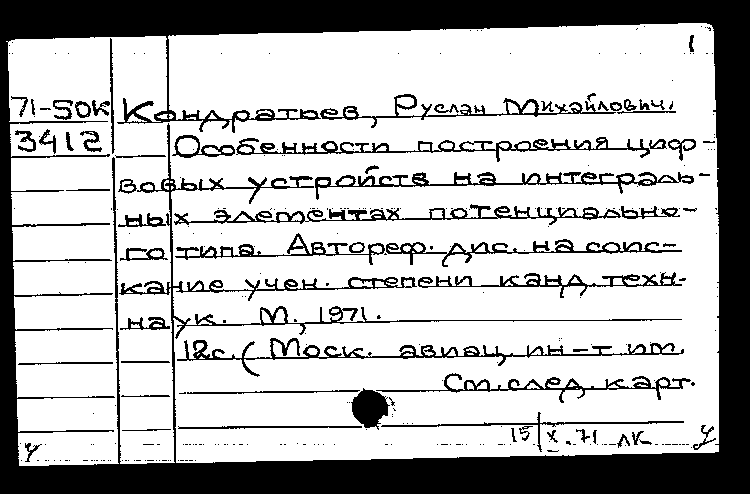 1
71-50К Кондратьев, Руслан Михайлович.
3412 Особенности построения циф-
ровых устройств на интеграль-
ных элементах потенциально-
го типа. Автореф. дис. на соис-
кание учен. степени канд. техн.
наук. М., 1971.
12с. (Моск. авиац. ин-т им.
См. след. карт.
15/X.71 ЛК